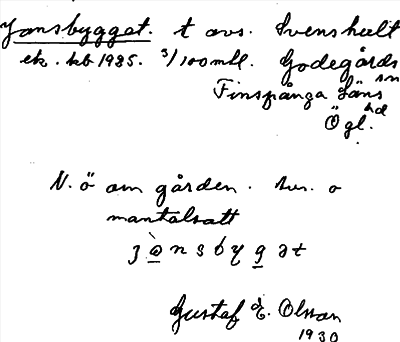 Jonsbygget. t avs. Svenshult
ek. kb 1925. 3/100 mtl. Godegårds
sn
Finspånga läns
hd
Ögl.
N. ö om gården.
mantalsatt
Gustaf E. Olsson
1930